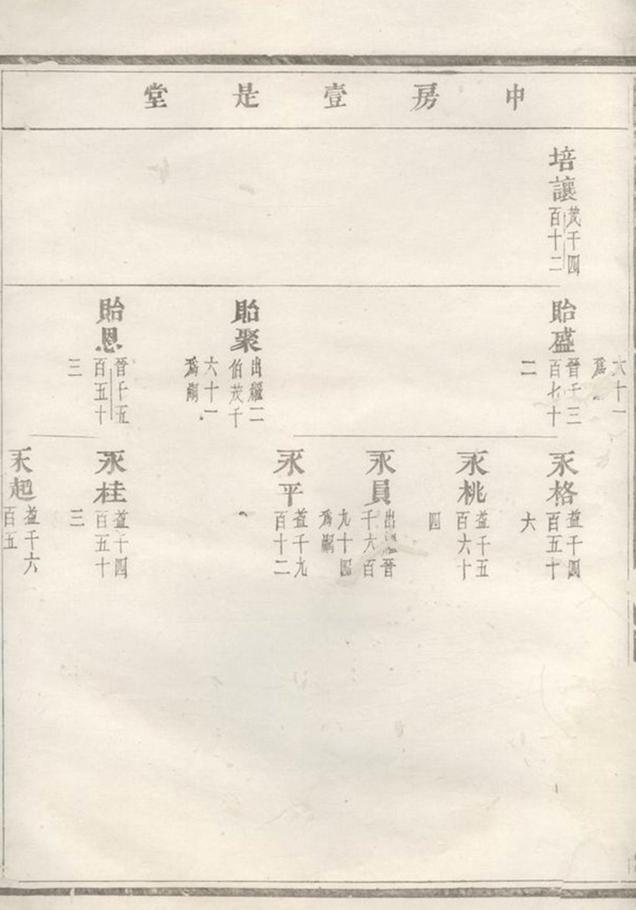 中房壹是堂
培讓
茂千四
百十二
六十一
爲
貽盛
晉千三
百七十
二
貽聚
出繼二
伯茂千
六十一
爲嗣
貽恩
晉千五
百五十
三
永格
益千四
百五十
六
永桃
益千五
百六十
四
永員
出 晉
千六百
九十四
爲嗣
永平
益千九
百十二
永桂
益千四
百五十
三
永起
益千六
百五